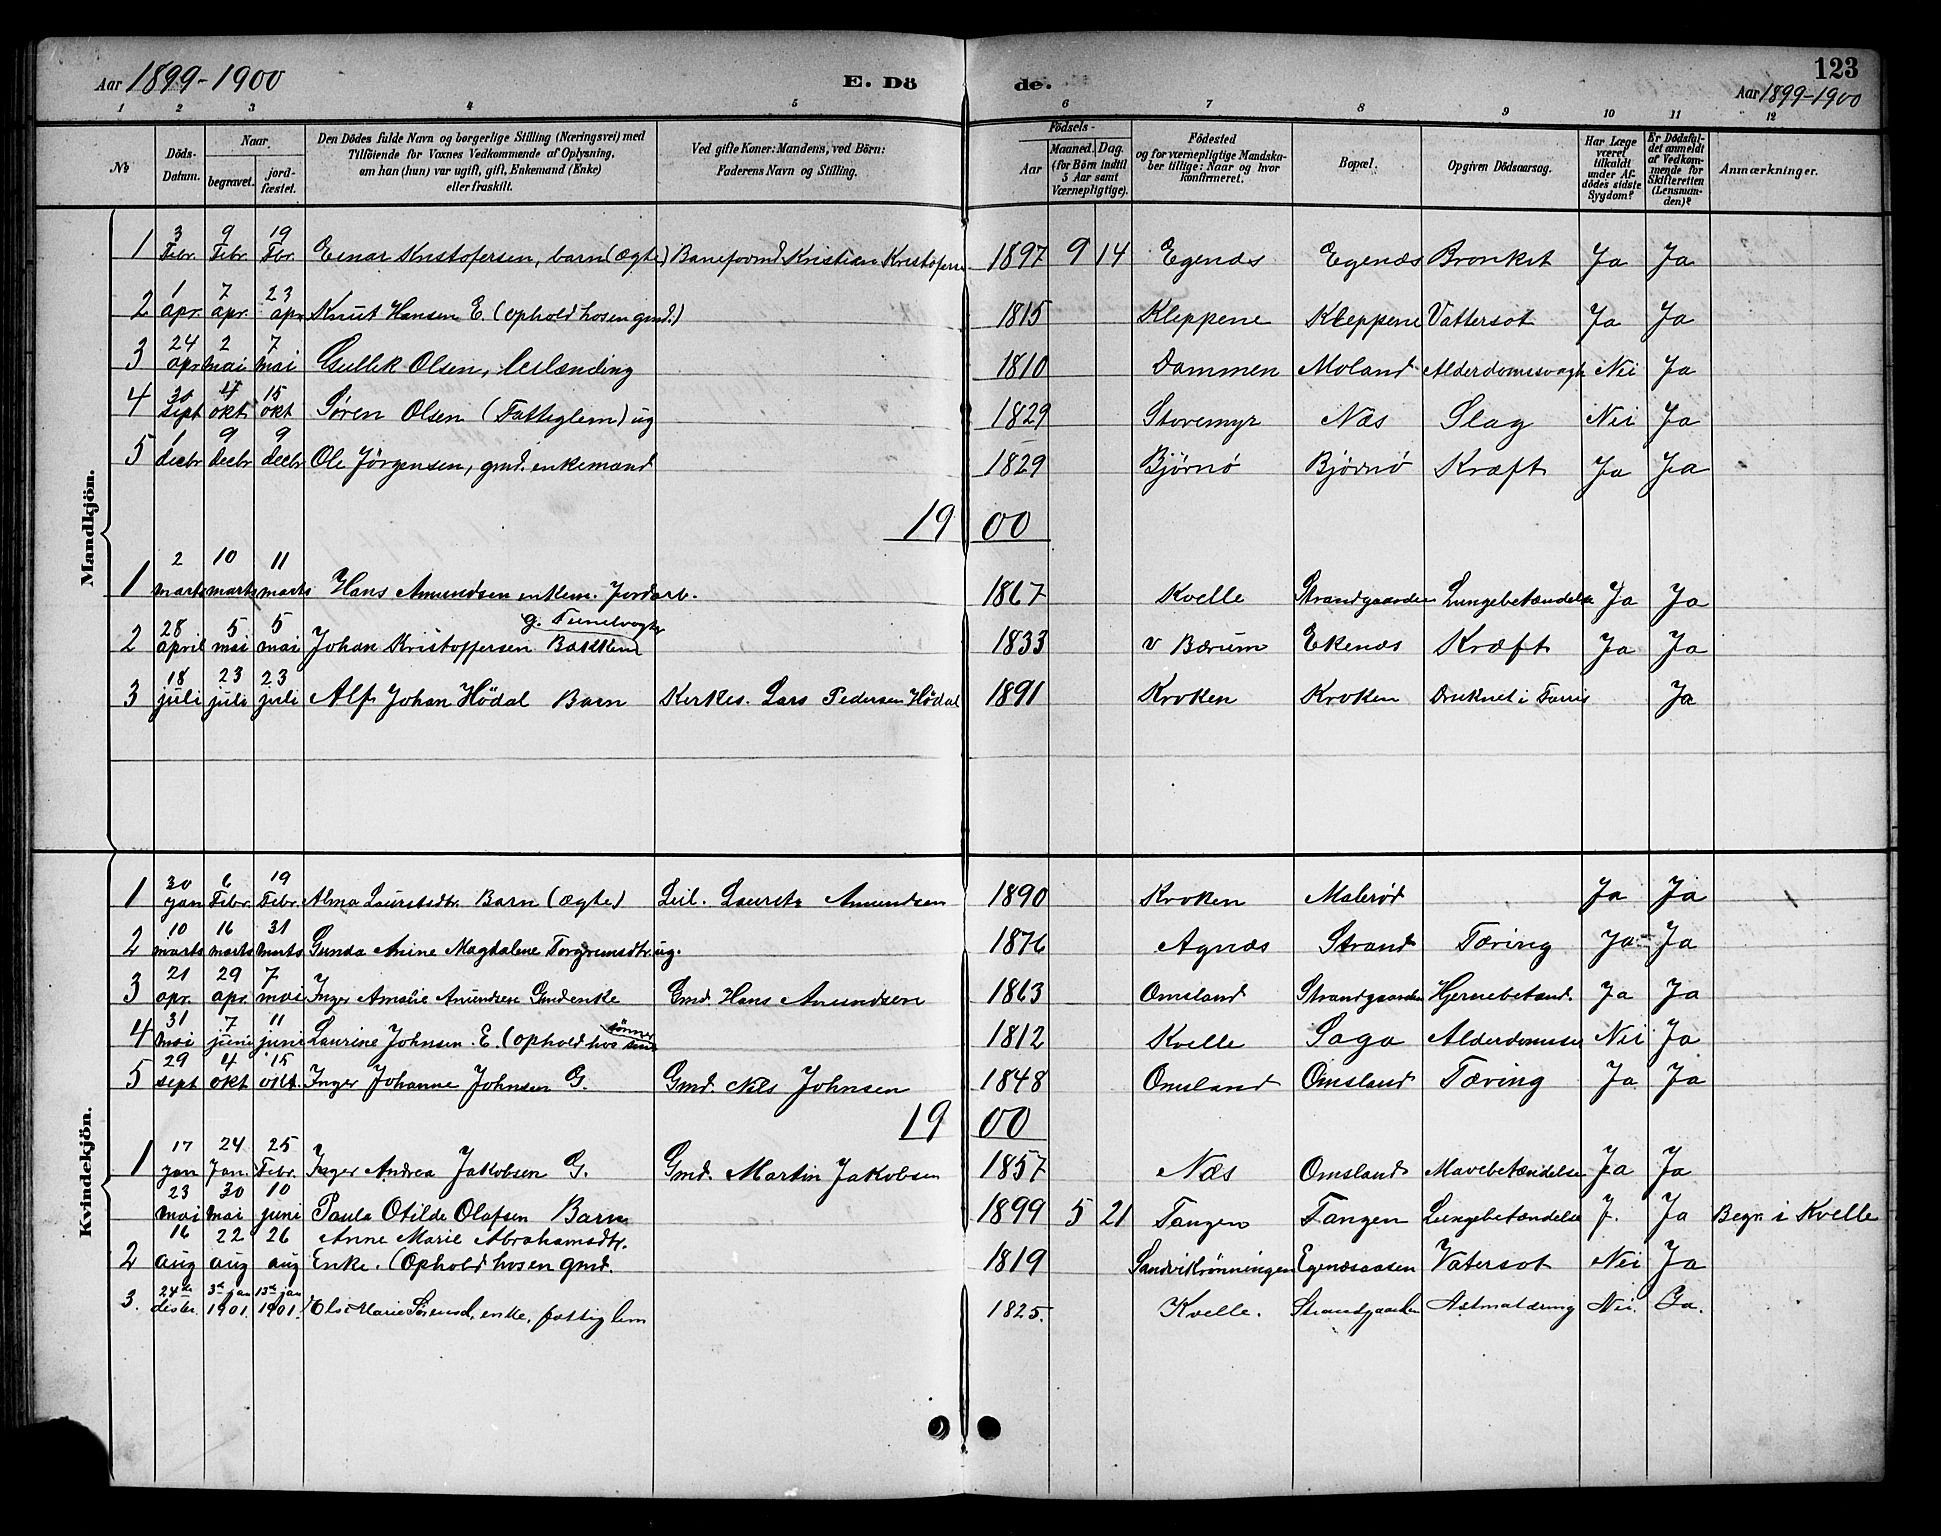 Aar 1899-1900 E. Dö de. 123
Aar 1899-1900
1 2 3 4 5 6 7 8 9 10 11 12
No Döds-Datum. Naar begravet. jord-fæstet. Den Dödes fulde Navn og borgerlige Stilling (Næringsvei) med Tilföiende for Voxnes Vedkommende af Oplysning, om han (hun) var ugift, gift, Enkemand (Enke) eller fraskilt. Ved gifte Koner: Mandens, ved Börn: Faderens Navn og Stilling. Födsels- Aar Maaned. Dag. (for Börn indtil 5 Aar samt Værnepligtige). Födested og for værnepligtige Mandskaber tillige: Naar og hvor konfirmeret. Bopæl. Opgiven Dödsaarsag. Har Læge været tilkaldt under Afdödes sidste Sygdom? Er Dödsfaldet anmeldt af Vedkommende for Skifteretten (Lensmanden)? Anmærkninger.
Mandkjön.
1 3 Febr. 9 Febr. 19 Febr. Einar Kristofersen, barn (ægte) Baneformd Kristian Kristofersen 1897 9 14 Egenæs Egenæs Bronkit Ja Ja
2 1 apr. 7 apr. 23 apr Knut Hansen E. (ophold hos en gmd.) 1815 Kleppene Kleppene Vattersot Ja Ja
3 24 apr 2 mai 7 mai Gullik Olsen, leilænding 1810 Dammen Moland Alderdomssvagh Nei Ja
4 30 sept 4 okt 15 okt Søren Olsen (Fattiglem) ug 1829 Storemyr Næs Slag Nei Ja
5 1 decbr 9 decbr 9 decbr Ole Jørgensen, gmd. enkemand 1829 Bjørnø Bjørnø Kræft Ja Ja
1900
1 2 marts 10 marts 11 marts Hans Amundsen enkem. Jordarb. 1867 Kvelle Strandgaarden Lungebetændelse Ja Ja
2 28 april 5 mai 5 mai Johan Kristoffersen Bakken g. Tunelvogter 1833 v Bærum Ekenæs Kræft Ja Ja
3 18 juli 23 juli 23 juli Alf Johan Hödal Barn Kirkes. Lars Pedersen Hödal 1891 Kroken Kroken Druknet i Farris Ja
Kvindekjön.
1 30 jan 6 Febr. 19 Febr. Alma Lauritsdtr. Barn (ægte) Leil. Laurits Amundsen 1890 Kroken Malerød Ja Ja
2 10 marts 16 marts 31 marts Gunda Anine Magdalene Torgrimsdtr. ug. 1876 Agnæs Strand Tæring Ja Ja
3 21 apr. 29 apr. 7 mai Inger Amalie Amundsen Gmdenke Gmd. Hans Amundsen 1863 Omsland Strandgaarden Hjernebetænd. Ja Ja
4 31 mai 7 juni 11 juni Laurine Johnsen. E. (ophold hos sønner sine 1812 Kvelle Saga Alderdomss Nei Ja
5 29 sept 4 okt 15 okt. Inger Johanne Johnsen G. Gmd. Nils Johnsen 1848 Omsland Omsland Tæring Ja Ja
1900
1 17 jan 24 Jan. 25 Febr. Inger Andrea Jakobsen G. Gmd. Martin Jakobsen 1857 Næs Omsland Mavebetændelse Ja Ja
23 mai 30 mai 10 juni Paula Otilde Olafsen Barn 1899 5 21 Tangen Tangen Lungebetændelse J. Ja Begr. i Kvelle
2 16 aug 22 aug 26 aug Anne Marie Abrahamsdtr. Enke. (Ophold hos en gmd. 1819 Sandvikrønningen Egenæsaasen Vatersot Nei Ja
3. 24de decbr. 3die jan 1901. 13de jan 1901. Else Marie Sörensd, enke, fattiglem 1825. Kvelle. Strandgaarden Astmatæring Nei. Ja.